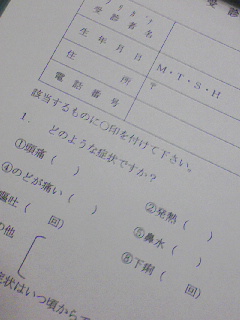 受診
フリガナ
受診者名
生年月日 M・T・S・H
住所 〒
電話番号
該当するものに○印を付けて下さい。
1. どのような症状ですか？
①頭痛（ ） ②発熱（ ）
④のどが痛い（ ） ⑤鼻水（ ）
嘔吐（ 回） ⑧下痢（ 回）
の他
症状はいつ頃から